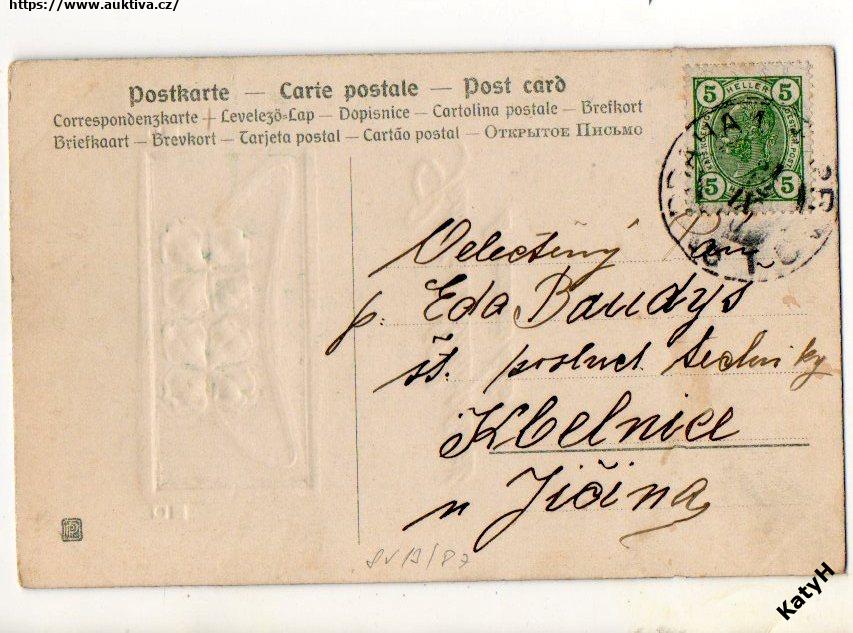 https://www.auktiva.cz/
Postkarte — Carte postale — Post card
Correspondenzkarte — Levelező-Lap — Dopisnice — Cartolina postale — Brefkort
Briefkaart — Brevkort — Tarjeta postal — Cartão postal — Открытое Письмо
5 HELLER 5
5 5
Velectěný pan
p. Eda Baudyš
št. posluch. techniky
Kbelnice
u Jičína
KatyH